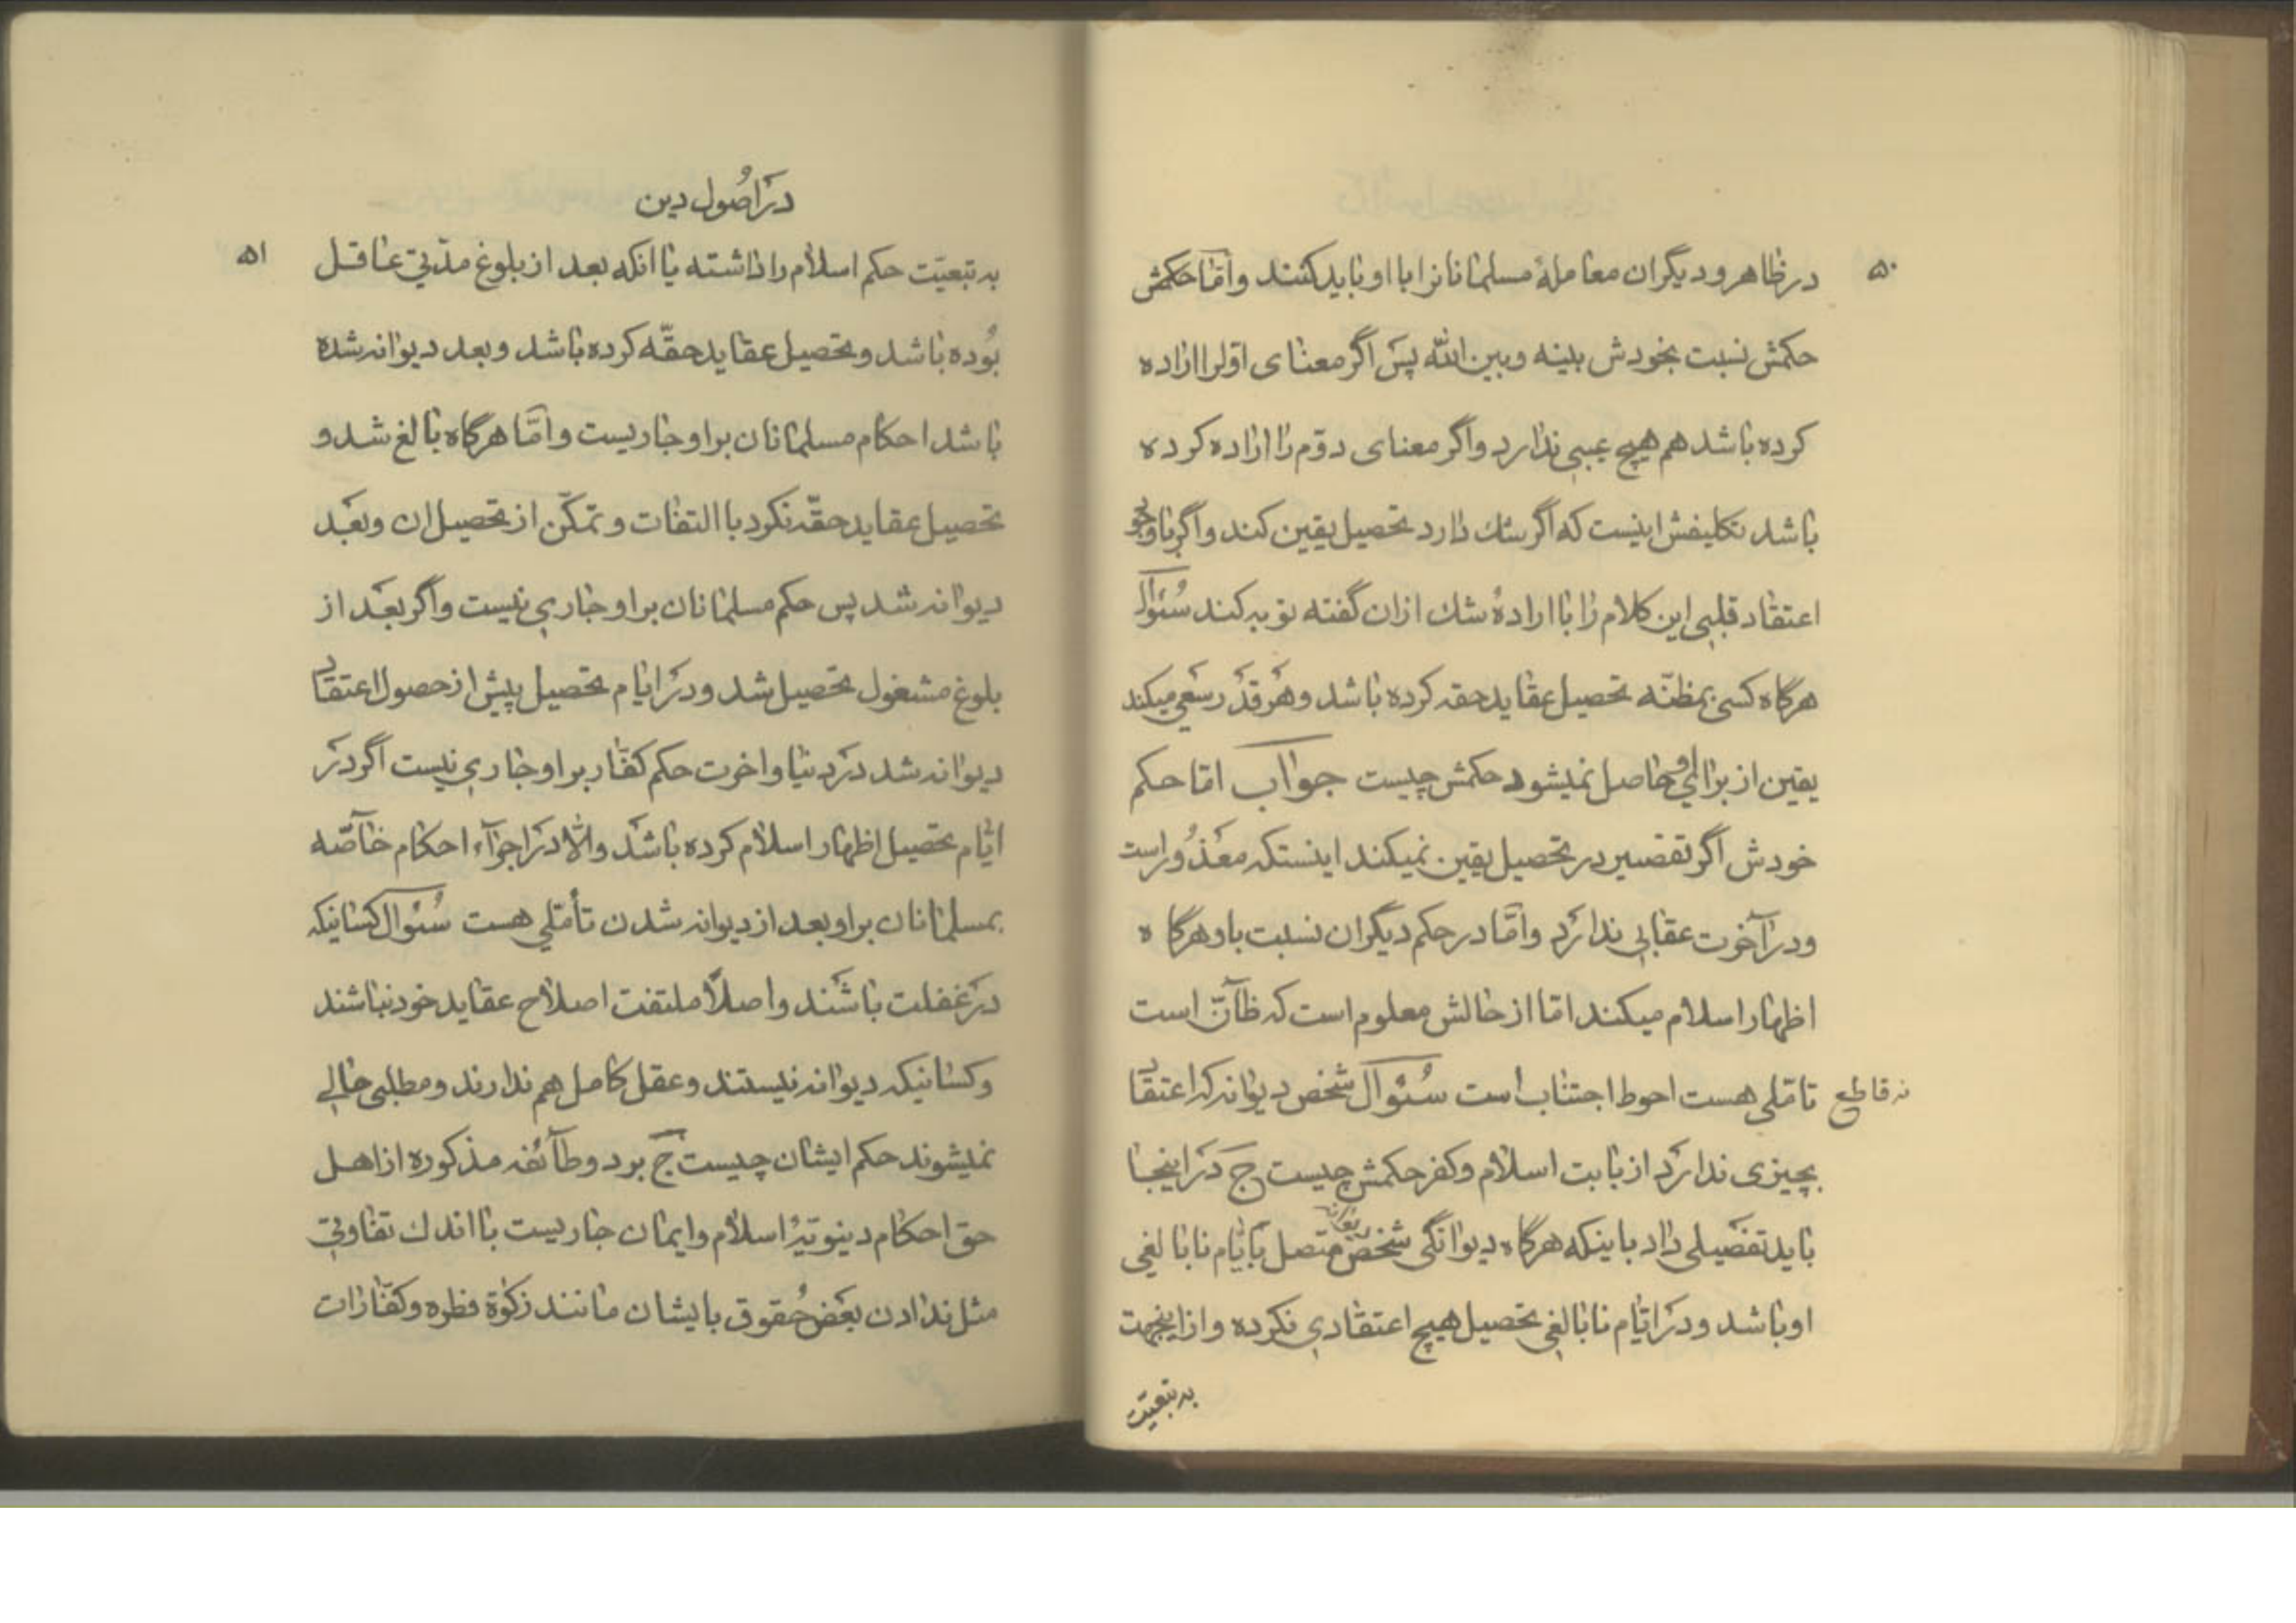 ۵۰
در ظاهر و دیگران معاملهٔ مسلمانانرا با او باید کنند و امّا حکمش
حکمش نسبت بخودش بینه و بین الله پس اگر معنای اوّلرا اراده
کرده باشد هم هیچ عیبی ندارد و اگر معنای دوّم را اراده کرده
باشد تکلیفش اینست که اگر شك دارد تحصیل یقین کند و اگر با وجود
اعتقاد قلبی این کلام را با ارادهٔ شك ازان گفته توبه کند سُئوال
هرگاه کسی بمظنّه تحصیل عقاید حقه کرده باشد و هَر قدَر سَعی میکند
یقین از برای او حاصل نمیشود حکمش چیست جواب امّا حکم
خودش اگر تقصیر در تحصیل یقین نمیکند اینستکه معَذُور است
و در آخرت عقابی ندارَد و امّا در حکم دیگران نسبت باو هرگاه
اظهار اسلام میکند امّا از حالش معلوم است که ظآنّ است
نه قاطع تامّلی هست احوط اجتناب است سُئوال شخص دیوانه که اعتقاد
بچیزی ندارَد از بابت اسلام و کفر حکمش چیست جَ دَر اینجا
باید تفصَیلی داد باینکه هرگاه دیوانگی شخص متصل بایّام نابالغی
او باشد و دَر ایّام نابالغی تحصیل هیچ اعتقادی نکرده و از اینجهت
به تبعیّت
در اُصول دین
۵۱
به تبعیّت حکم اسلام را داشته یا انکه بعد از بلوغ مدّتی عاقل
بُوده باشد و تحصیل عقاید حقّه کرده باشد و بعد دیوانه شده
باشد احکام مسلمانان بر او جاریست و امّا هرگاه بالغ شد و
تحصیل عقاید حقّه نکرد با التفات و تمکّن از تحصیل ان و بعَد
دیوانه شد پس حکم مسلمانان بر او جاری نیست و اگر بعَد از
بلوغ مشغول تحصیل شد و دَر ایام تحصیل پیش از حصول اعتقاد
دیوانه شد دَر دنیا و اخرت حکم کفّار بر او جاری نیست اگر دَر
ایّام تحصیل اظهار اسلام کرده باشَد و الّا دَر اجرآء احکام خاصّه
بمسلمانان بر او بعد از دیوانه شدن تأمّلی هست سُئوال کسانیکه
دَر غفلت باشَند و اصلاً ملتفت اصلاح عقاید خود نباشند
و کسانیکه دیوانه نیستند و عقل کامل هم ندارند و مطلبی حالی
نمیشوند حکم ایشان چیست جَ بر دو طآئفه مذکوره از اهل
حق احکام دینویّهٔ اسلام و ایمان جاریست با اندك تفاوتی
مثل ندادن بعَض حُقوق بایشان مانند زکوة فطره و کفّارات